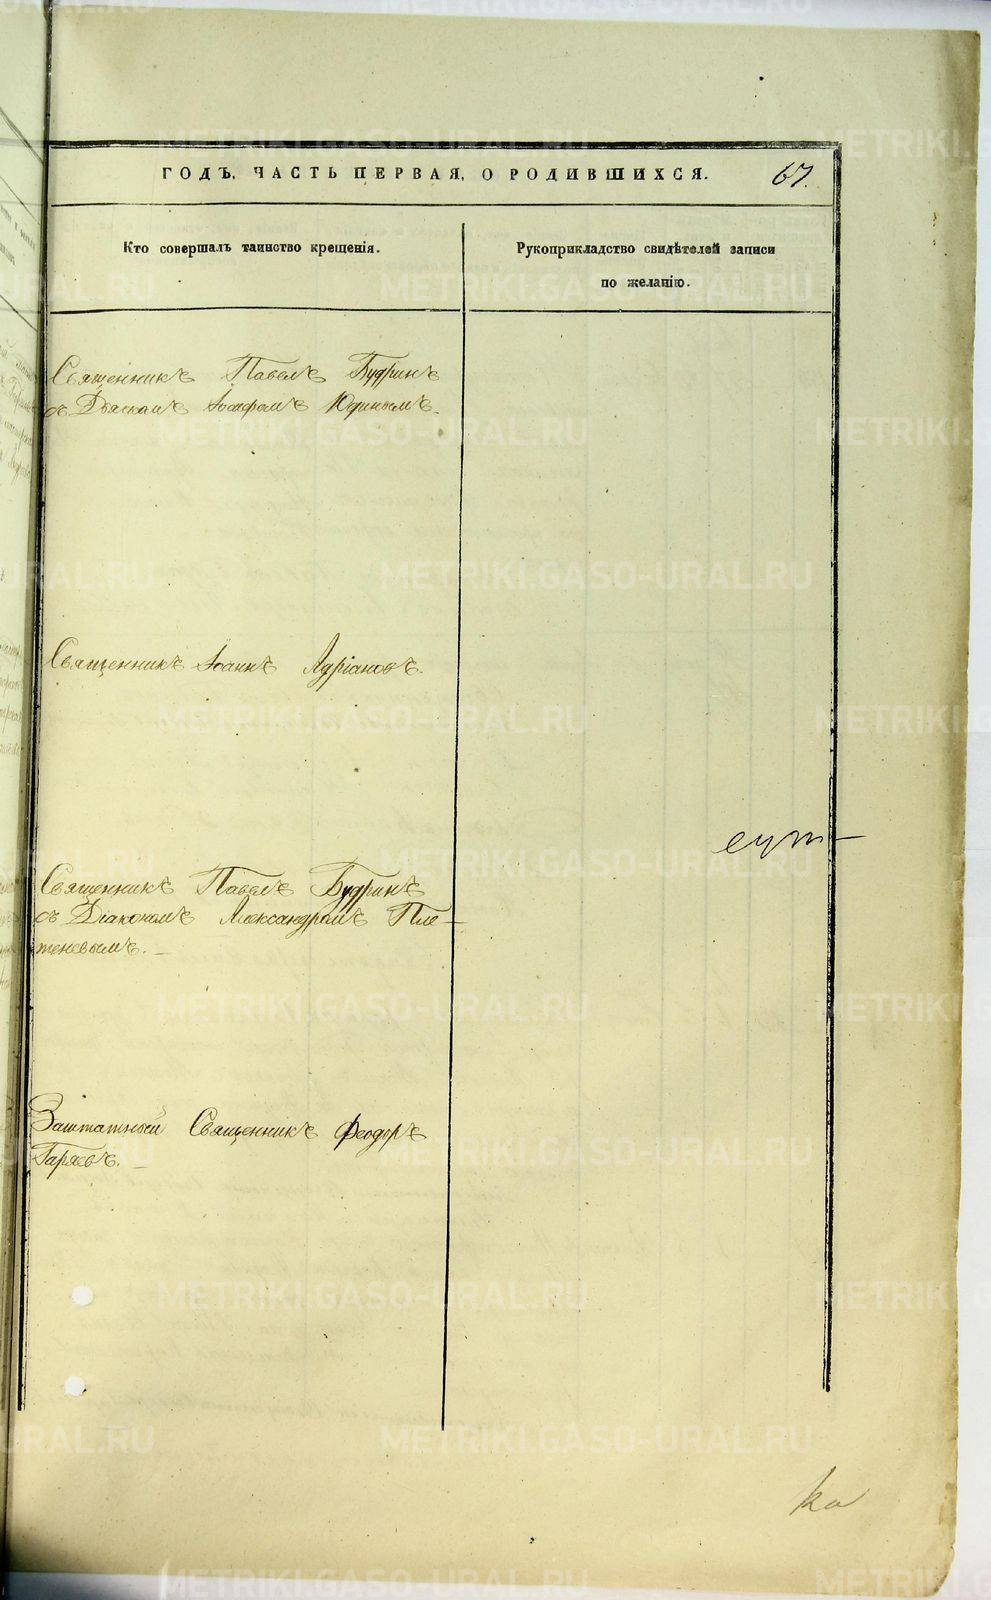 ГОДЪ, ЧАСТЬ ПЕРВАЯ, О РОДИВШИХСЯ.
67.
Кто совершалъ таинство крещенія.
Рукоприкладство свидѣтелей записи
по желанію.
Священникъ Павелъ Будринъ
съ Діакономъ Іосифомъ Юдинымъ.
Священникъ Іоаннъ Адріановъ.
Священникъ Павелъ Будринъ
съ Діакономъ Александромъ Пле-
теневымъ.
Заштатный Священникъ Феодоръ
Гаряевъ.
METRIKI.GASO-URAL.RU